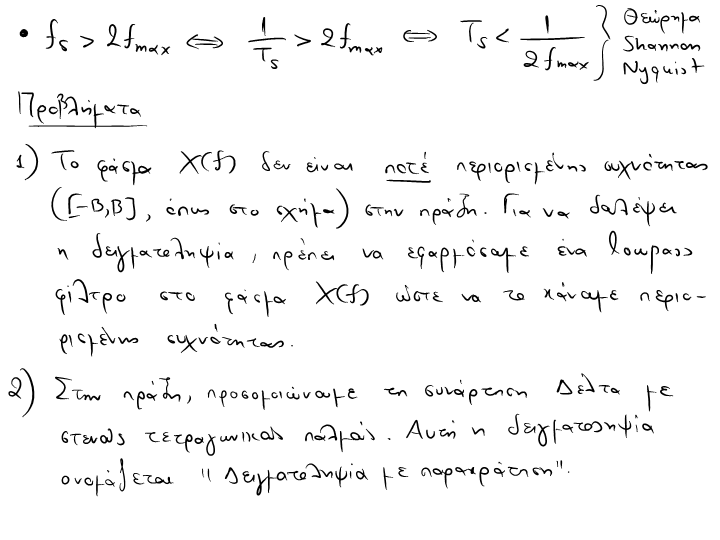 • fs > 2fmax ⟺ 1/Ts > 2fmax ⟺ Ts < 1/(2fmax) } Θεώρημα Shannon Nyquist
Προβλήματα
1) Το φάσμα X(f) δεν είναι ποτέ περιορισμένης συχνότητας
([-B,B], όπως στο σχήμα) στην πράξη. Για να δουλέψει
η δειγματοληψία, πρέπει να εφαρμόσουμε ένα lowpass
φίλτρο στο φάσμα X(f) ώστε να το κάνουμε περιο-
ρισμένης συχνότητας.
2) Στην πράξη, προσομοιώνουμε τη συνάρτηση Δέλτα με
στενούς τετραγωνικούς παλμούς. Αυτή η δειγματοληψία
ονομάζεται "Δειγματοληψία με παρακράτηση".